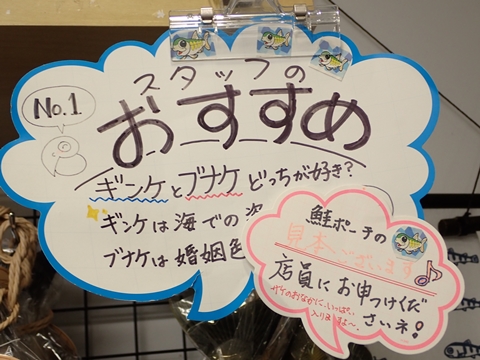 No.1
スタッフの
おすすめ
ギンケとブナケどっちが好き?
ギンケは海での
ブナケは婚姻色
鮭ポーチの
見本ございます♪
店員にお申つけくだ
さいネ!
サケのおなかにいっぱい
入りますよ〜。